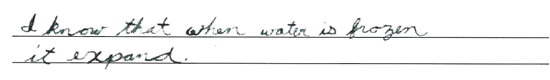 I know that when water is frozen
it expand.